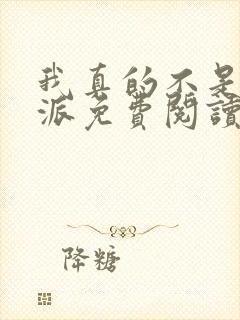 我真的不是
派免費閱讀
降糖